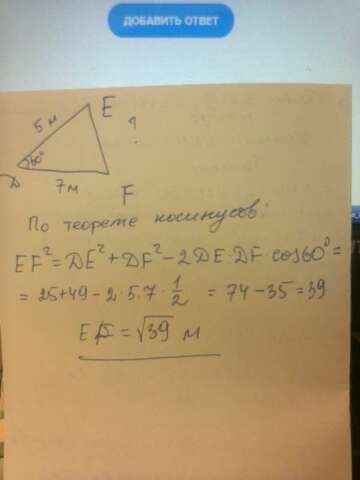 ДОБАВИТЬ ОТВЕТ
E
5 м
?
D 60°
7м
F
По теореме косинусов:
EF² = DE² + DF² - 2DE·DF·cos60° =
= 25+49 - 2·5·7·1/2 = 74-35=39
EF = √39 м